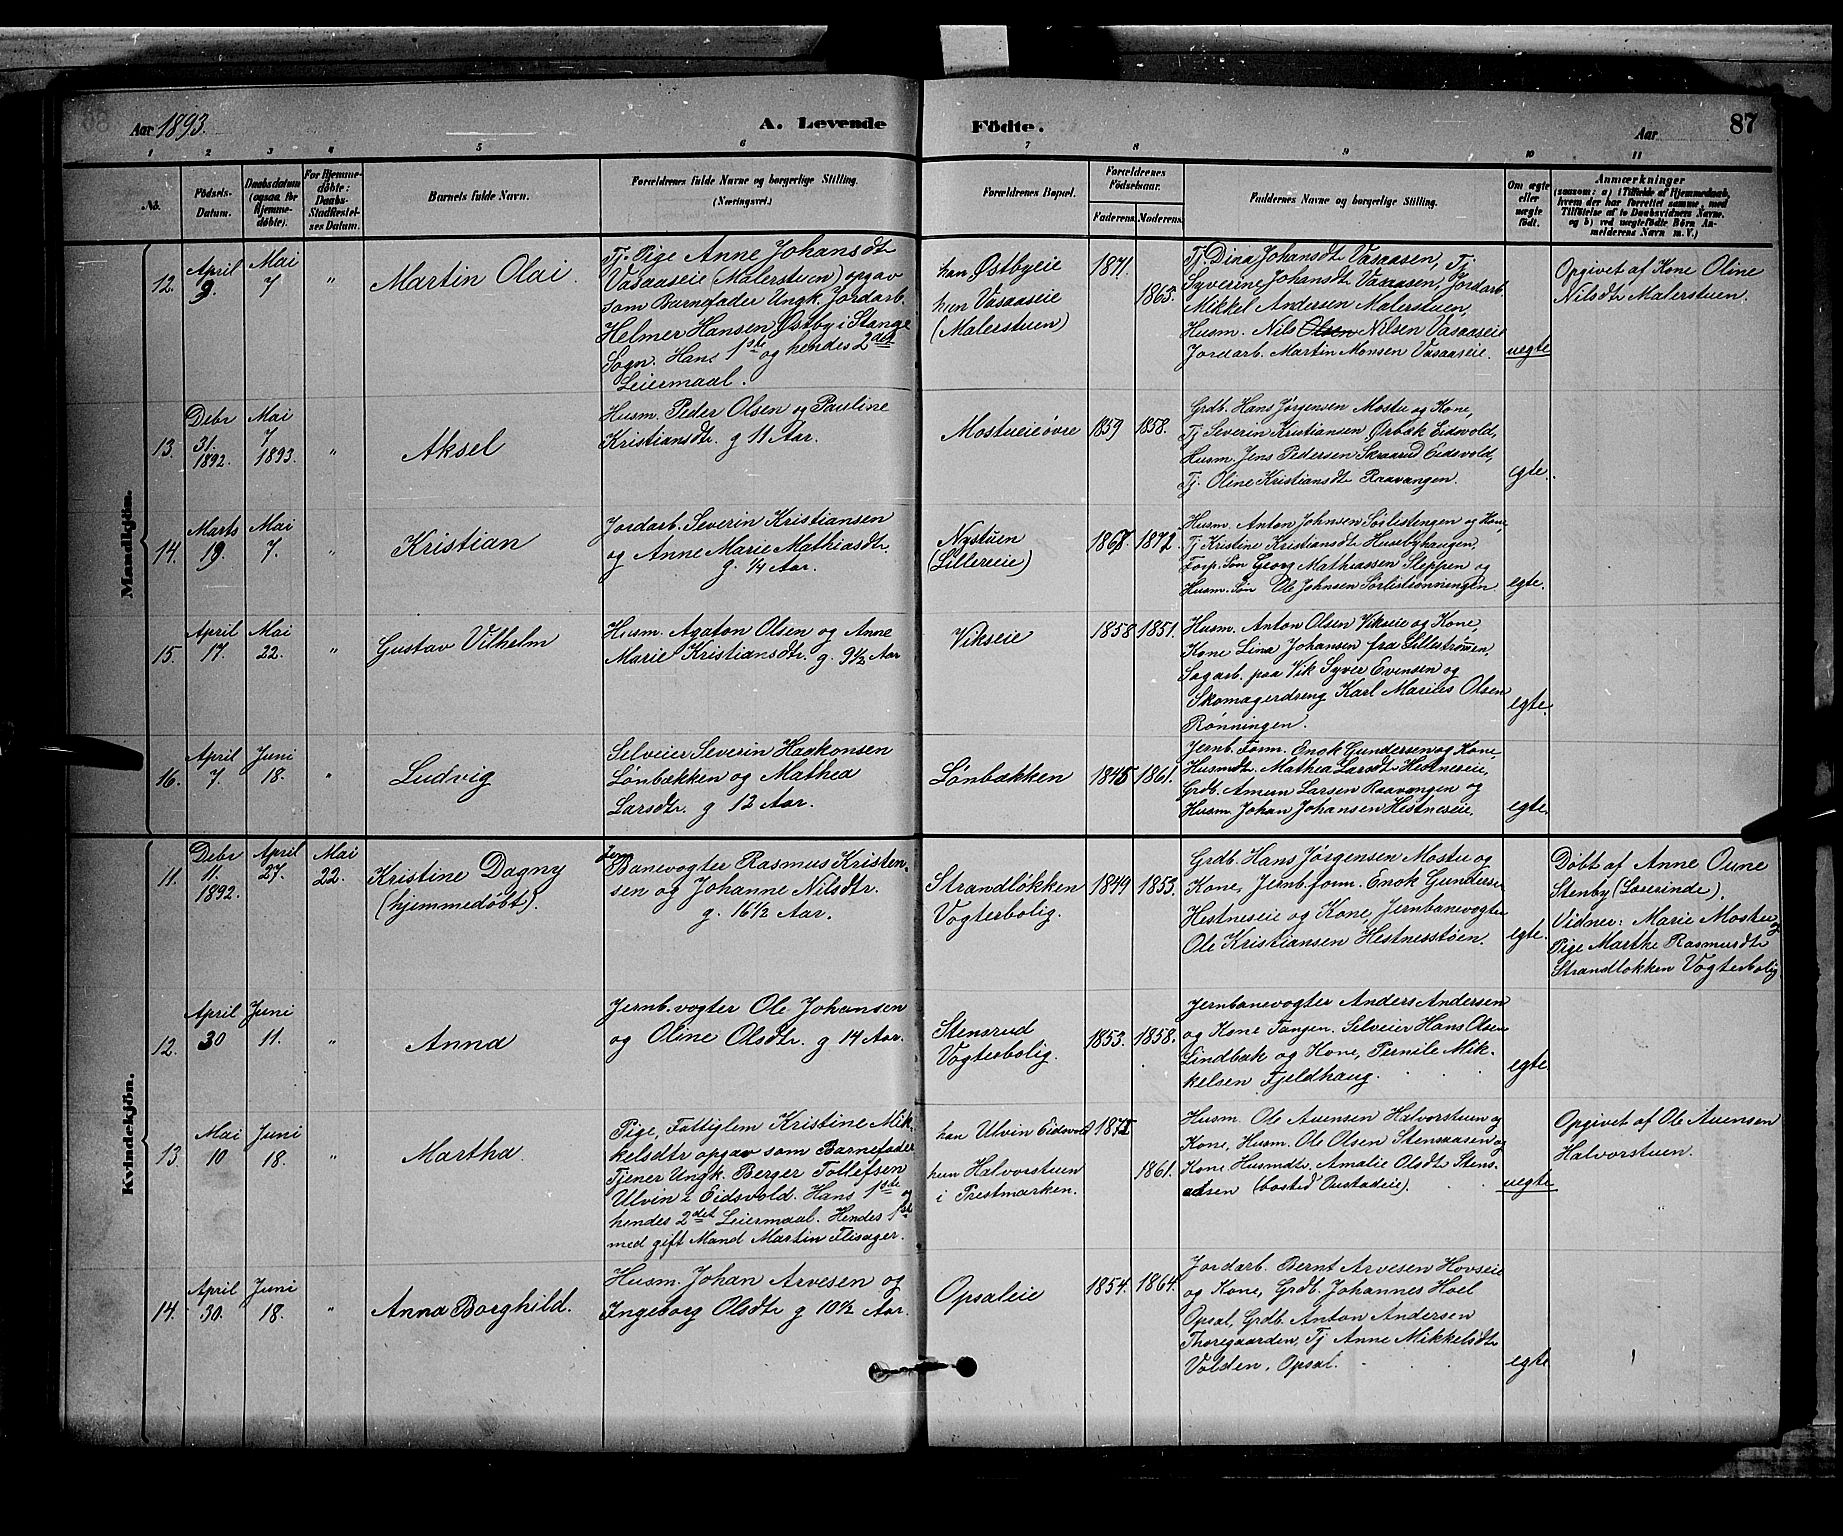 Aar 1893.
A. Levende
Födte.
Aar
87
1 2 3 4 5 6 7 8 9 10 11
No.
Födsels-
Datum.
Daabsdatum
(ogsaa for
Hjemme-
döbte).
For Hjemme-
döbte:
Daabs-
Stadfæstel-
ses Datum.
Barnets fulde Navn.
Forældrenes fulde Navne og borgerlige Stilling.
(Næringsvei.)
Forældrenes Bopæl.
Forældrenes
Födselsaar.
Faderens. Moderens.
Faddernes Navne og borgerlige Stilling.
Om ægte
eller
uægte
födt.
Anmærkninger
(saasom: a) i Tilfælde af Hjemmedaab,
hvem der har forrettet samme, med
Tilföielse af to Daabsvidners Navne.
og b) ved uægtefödte Börn An-
melderens Navn m. V.)
Mandkjön.
12.
April
9.
Mai
7
"
Martin Olai.
Tj. Pige Anne Johansdtr
Vasaaseie (Malerstuen) opgav
som Barnefader Ungk. Jordarb.
Helmer Hansen Østby i Stange
Sogn. Hans 1ste og hendes 2det
Leiermaal.
han Østbyeie
hun Vasaaseie
(Malerstuen)
1871.
1865.
Tj. Dina Johansdtr Vasaasen, Tj.
Syverine Johansdtr Vasaasen, Jordarb.
Mikkel Andersen Malerstuen,
Husm. Nils Olsen Nilsen Vasaaseie
Jordarb. Martin Monsen Vasaaseie.
uegte
Opgivet af Kone Oline
Nilsdtr Malerstuen.
13.
Debr
31.
1892.
Mai
7
1893.
"
Aksel
Husm. Peder Olsen og Pauline
Kristiansdtr. g 11 Aar.
Mostueieøvre
1859
1858.
Grdb. Hans Jørgensen Mostu og Kone,
Tj. Severin Kristiansen Ørbæk Eidsvold,
Husm. Jens Pedersen Skraarud Eidsvold,
Tj. Oline Kristiansdtr Raavangen.
egte.
14.
Marts
19.
Mai
7.
"
Kristian
Jordarb. Severin Kristiansen
og Anne Marie Mathiasdtr.
g. 1/4 Aar.
Nystuen
(Lillereie)
1868.
1872.
Husm. Anton Johnsen Sørlistengen og Kone,
Tj. Kristine Kristiansdtr Husebyhaugen,
Forp. Søn Georg Mathiassen Steppen og
Husm. Søn Ole Johnsen Sørlistrønningen.
egte.
15.
April
17.
Mai
22.
"
Gustav Vilhelm
Husm. Agaton Olsen og Anne
Marie Kristiansdtr. g. 9 1/2 Aar
Vikseie
1858
1851.
Husm. Anton Olsen Vikseie og Kone,
Kone Lina Johansen fra Lillestrømen,
Sagarb. paa Vik Syver Evensen og
Skomagerdreng Karl Marius Olsen
Rønningen.
egte.
16.
April
7.
Juni
18.
"
Ludvig
Selveier Severin Haakonsen
Lønbækken og Mathea
Larsdtr. g 12 Aar.
Lønbækken
1845
1861.
Jernb. Form. Enok Gundersen og Kone,
Husmdtr. Mathea Larsdtr Hestneseie,
Grdb. Amun Larsen Raavangen og
Husm. Johan Johansen Hestneseie,
egte.
Kvindekjön.
11.
Debr
11.
1892.
April
27.
Mai
22.
Kristine Dagny
(hjemmedøbt).
Jern
Banevogter Rasmus Kristen-
sen og Johanne Nilsdtr.
g. 16 1/2 Aar.
Strandløkken
Vogterbolig.
1849
1853.
Grdb. Hans Jørgensen Mostu og
Kone, Jernb. form. Enok Gunderse
Hestneseie og Kone, Jernbanevogter
Ole Kristiansen Hestnesstøen.
egte.
Døbt af Anne Oune
Stenby (Lærerinde).
Vidner: Marie Mostu og
Pige Marthe Rasmusdtr
Strandløkken Vogterbolig
12.
April
30
Juni
11.
"
Anna
Jernb. vogter Ole Johansen
og Oline Olsdtr. g 14 Aar.
Stensrud
Vogterbolig.
1853.
1858.
Jernbanevogter Anders Andersen
og Kone Tangen. Selveier Hans Olsen
Lindbæk og Kone, Pernile Mik-
kelsen Fjeldhaug.
egte
13.
Mai
10
Juni
18.
"
Martha.
Pige, Fattiglem Kristine Mik-
kelsdtr opgav som Barnefader
Tjener Ungk. Berger Tollefsen
Ulvin i Eidsvold. Hans 1ste og
hendes 2det Leiermaal. Hendes 1ste
med gift Mand Martin Flisager.
han Ulvin Eidsvold
hun Halvorstuen
i Prestmarken.
1861.
Husm. Ole Auensen Halvorstuen og
Kone, Husm. Ole Olsen Stensaasen og
Kone Husmdtr. Amalie Olsdtr Stens-
aasen (bosted Oustadeie).
uegte
Opgivet af Ole Auensen
Halvorstuen.
14.
April
30.
Juni
18.
"
Anna Borghild.
Husm. Johan Arvesen og
Ingeborg Olsdtr g 10 1/2 Aar.
Opsaleie
1854.
1864.
Jordarb. Bernt Arvesen Hovseie
og Kone, Grdb. Johannes Hoel
Opsal, Grdb. Anton Andersen
Thoregaarden, Tj. Anne Mikkelsdtr
Volden, Opsal.
egte